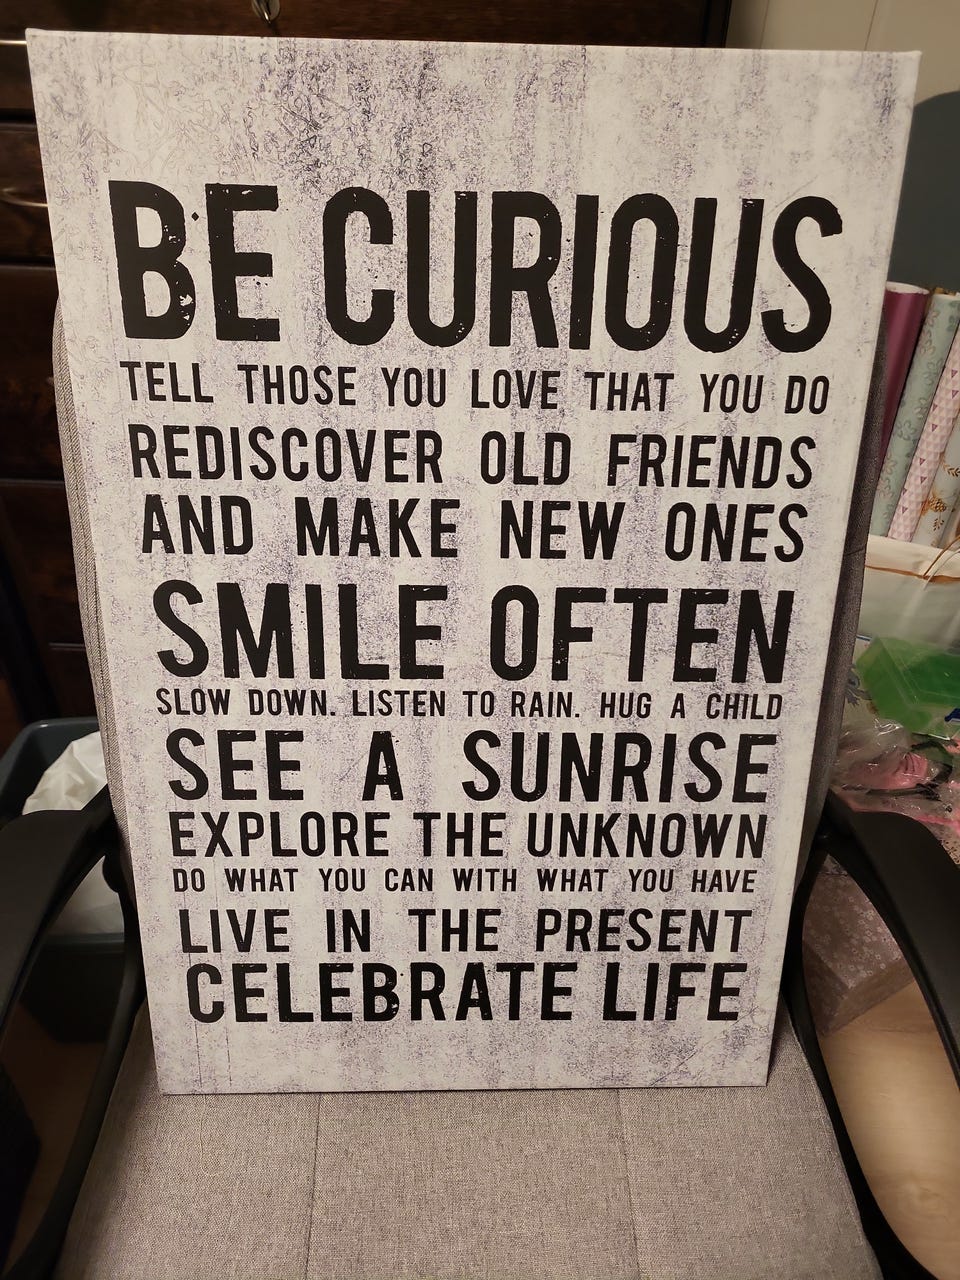 BE CURIOUS
TELL THOSE YOU LOVE THAT YOU DO
REDISCOVER OLD FRIENDS
AND MAKE NEW ONES
SMILE OFTEN
SLOW DOWN. LISTEN TO RAIN. HUG A CHILD
SEE A SUNRISE
EXPLORE THE UNKNOWN
DO WHAT YOU CAN WITH WHAT YOU HAVE
LIVE IN THE PRESENT
CELEBRATE LIFE